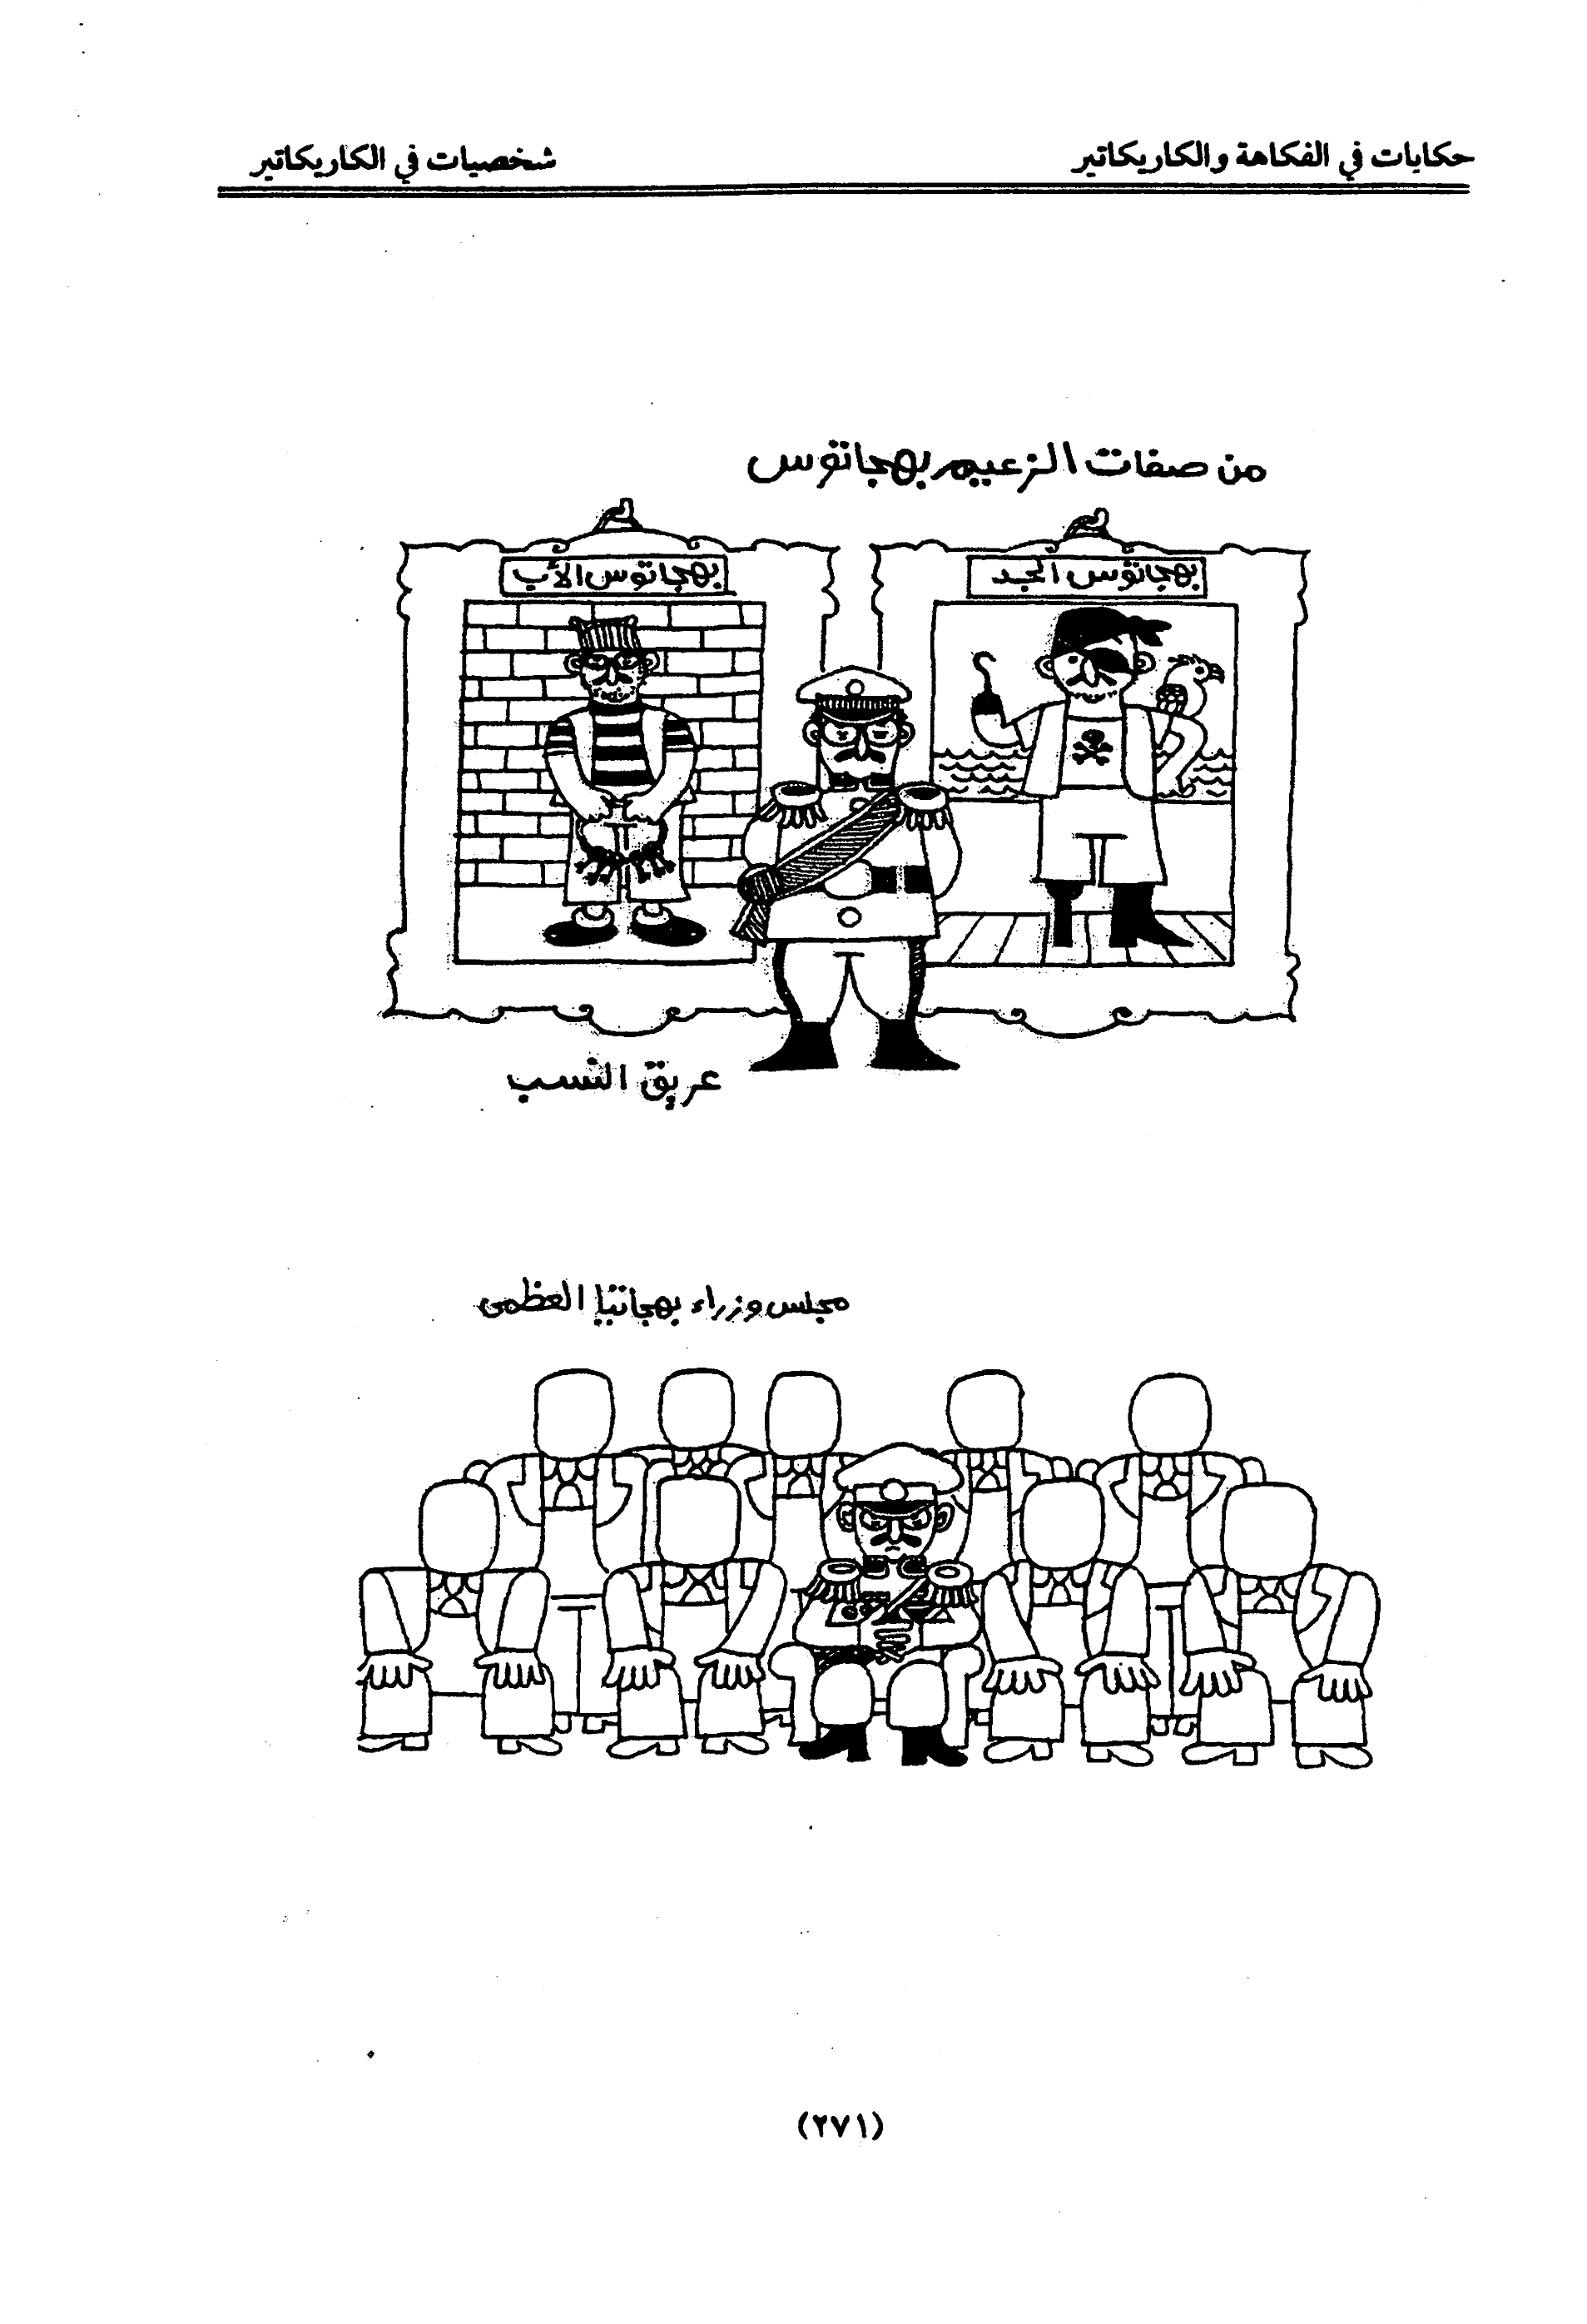 حكايات في الفكاهة والكاريكاتير
شخصيات في الكاريكاتير
من صفات الزعيم بهجاتوس
بهجاتوس الجد
بهجاتوس الأب
عريق النسب
مجلس وزراء بهجاتيا العظمى
(٢٧١)